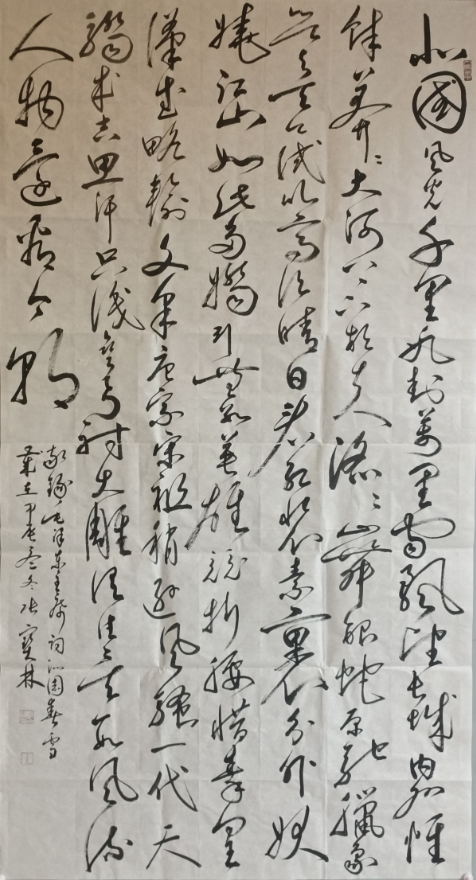 北國風光千里冰封萬里雪飄望長城內外惟
餘莽莽大河上下頓失滔滔山舞銀蛇原馳臘象
欲與天公試比高須晴日看紅裝素裹分外妖
嬈江山如此多嬌引無數英雄競折腰惜秦皇
漢武略輸文采唐宗宋祖稍遜風騷一代天
驕成吉思汗只識彎弓射大雕俱往矣數風流
人物還看今朝
敬錄毛澤東主席詞沁園春雪
歲在甲辰孟冬張寶林